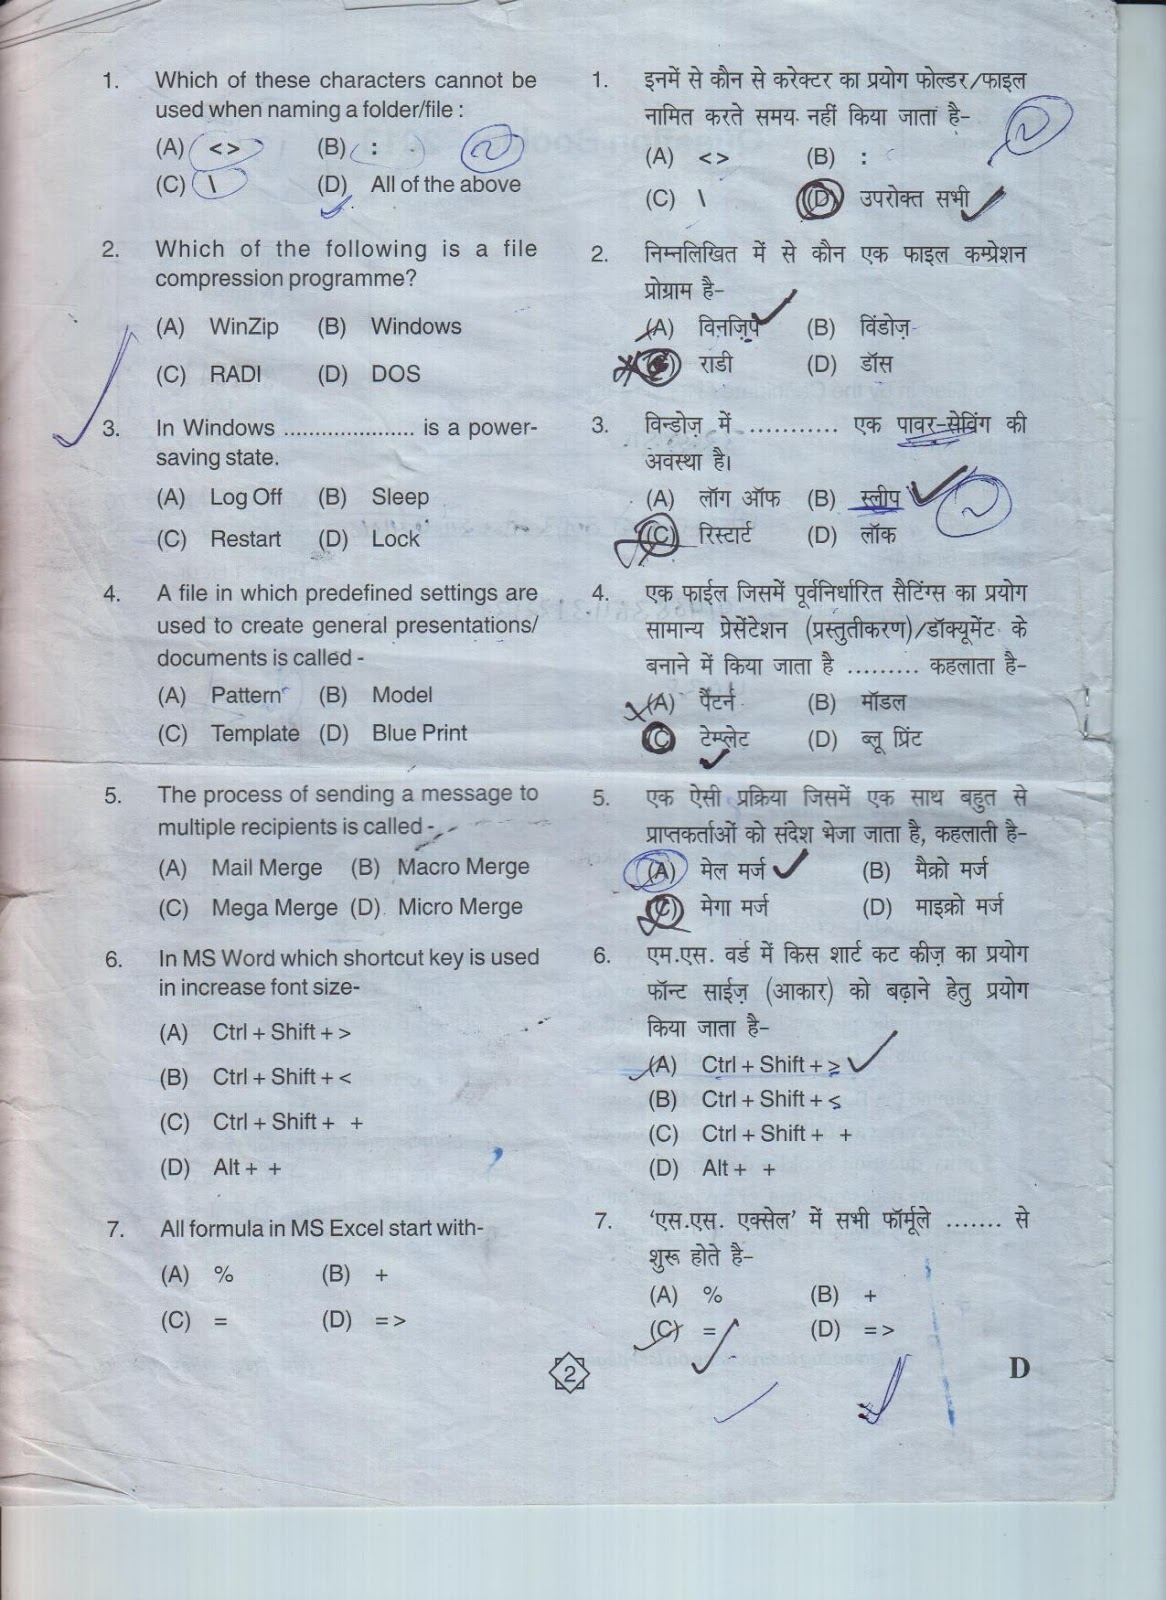 1. Which of these characters cannot be
used when naming a folder/file :
(A) <> (B) :
(C) \ (D) All of the above
2. Which of the following is a file
compression programme?
(A) WinZip (B) Windows
(C) RADI (D) DOS
3. In Windows ..................... is a power-
saving state.
(A) Log Off (B) Sleep
(C) Restart (D) Lock
4. A file in which predefined settings are
used to create general presentations/
documents is called -
(A) Pattern (B) Model
(C) Template (D) Blue Print
5. The process of sending a message to
multiple recipients is called -
(A) Mail Merge (B) Macro Merge
(C) Mega Merge (D) Micro Merge
6. In MS Word which shortcut key is used
in increase font size-
(A) Ctrl + Shift + >
(B) Ctrl + Shift + <
(C) Ctrl + Shift + +
(D) Alt + +
7. All formula in MS Excel start with-
(A) % (B) +
(C) = (D) = >
1. इनमें से कौन से करेक्टर का प्रयोग फोल्डर/फाइल
नामित करते समय नहीं किया जाता है-
(A) <> (B) :
(C) \ (D) उपरोक्त सभी
2. निम्नलिखित में से कौन एक फाइल कम्प्रेशन
प्रोग्राम है-
(A) विनज़िप (B) विंडोज़
(C) राडी (D) डॉस
3. विन्डोज़ में ........... एक पावर-सेविंग की
अवस्था है।
(A) लॉग ऑफ (B) स्लीप
(C) रिस्टार्ट (D) लॉक
4. एक फाईल जिसमें पूर्वनिर्धारित सैटिंग्स का प्रयोग
सामान्य प्रेसेंटेशन (प्रस्तुतीकरण)/डॉक्यूमेंट के
बनाने में किया जाता है ......... कहलाता है-
(A) पैटर्न (B) मॉडल
(C) टेम्प्लेट (D) ब्लू प्रिंट
5. एक ऐसी प्रक्रिया जिसमें एक साथ बहुत से
प्राप्तकर्ताओं को संदेश भेजा जाता है, कहलाती है-
(A) मेल मर्ज (B) मैक्रो मर्ज
(C) मेगा मर्ज (D) माइक्रो मर्ज
6. एम.एस. वर्ड में किस शार्ट कट कीज़ का प्रयोग
फॉन्ट साईज़ (आकार) को बढ़ाने हेतु प्रयोग
किया जाता है-
(A) Ctrl + Shift + >
(B) Ctrl + Shift + <
(C) Ctrl + Shift + +
(D) Alt + +
7. 'एस.एस. एक्सेल' में सभी फॉर्मूले ....... से
शुरू होते है-
(A) % (B) +
(C) = (D) = >
2 D